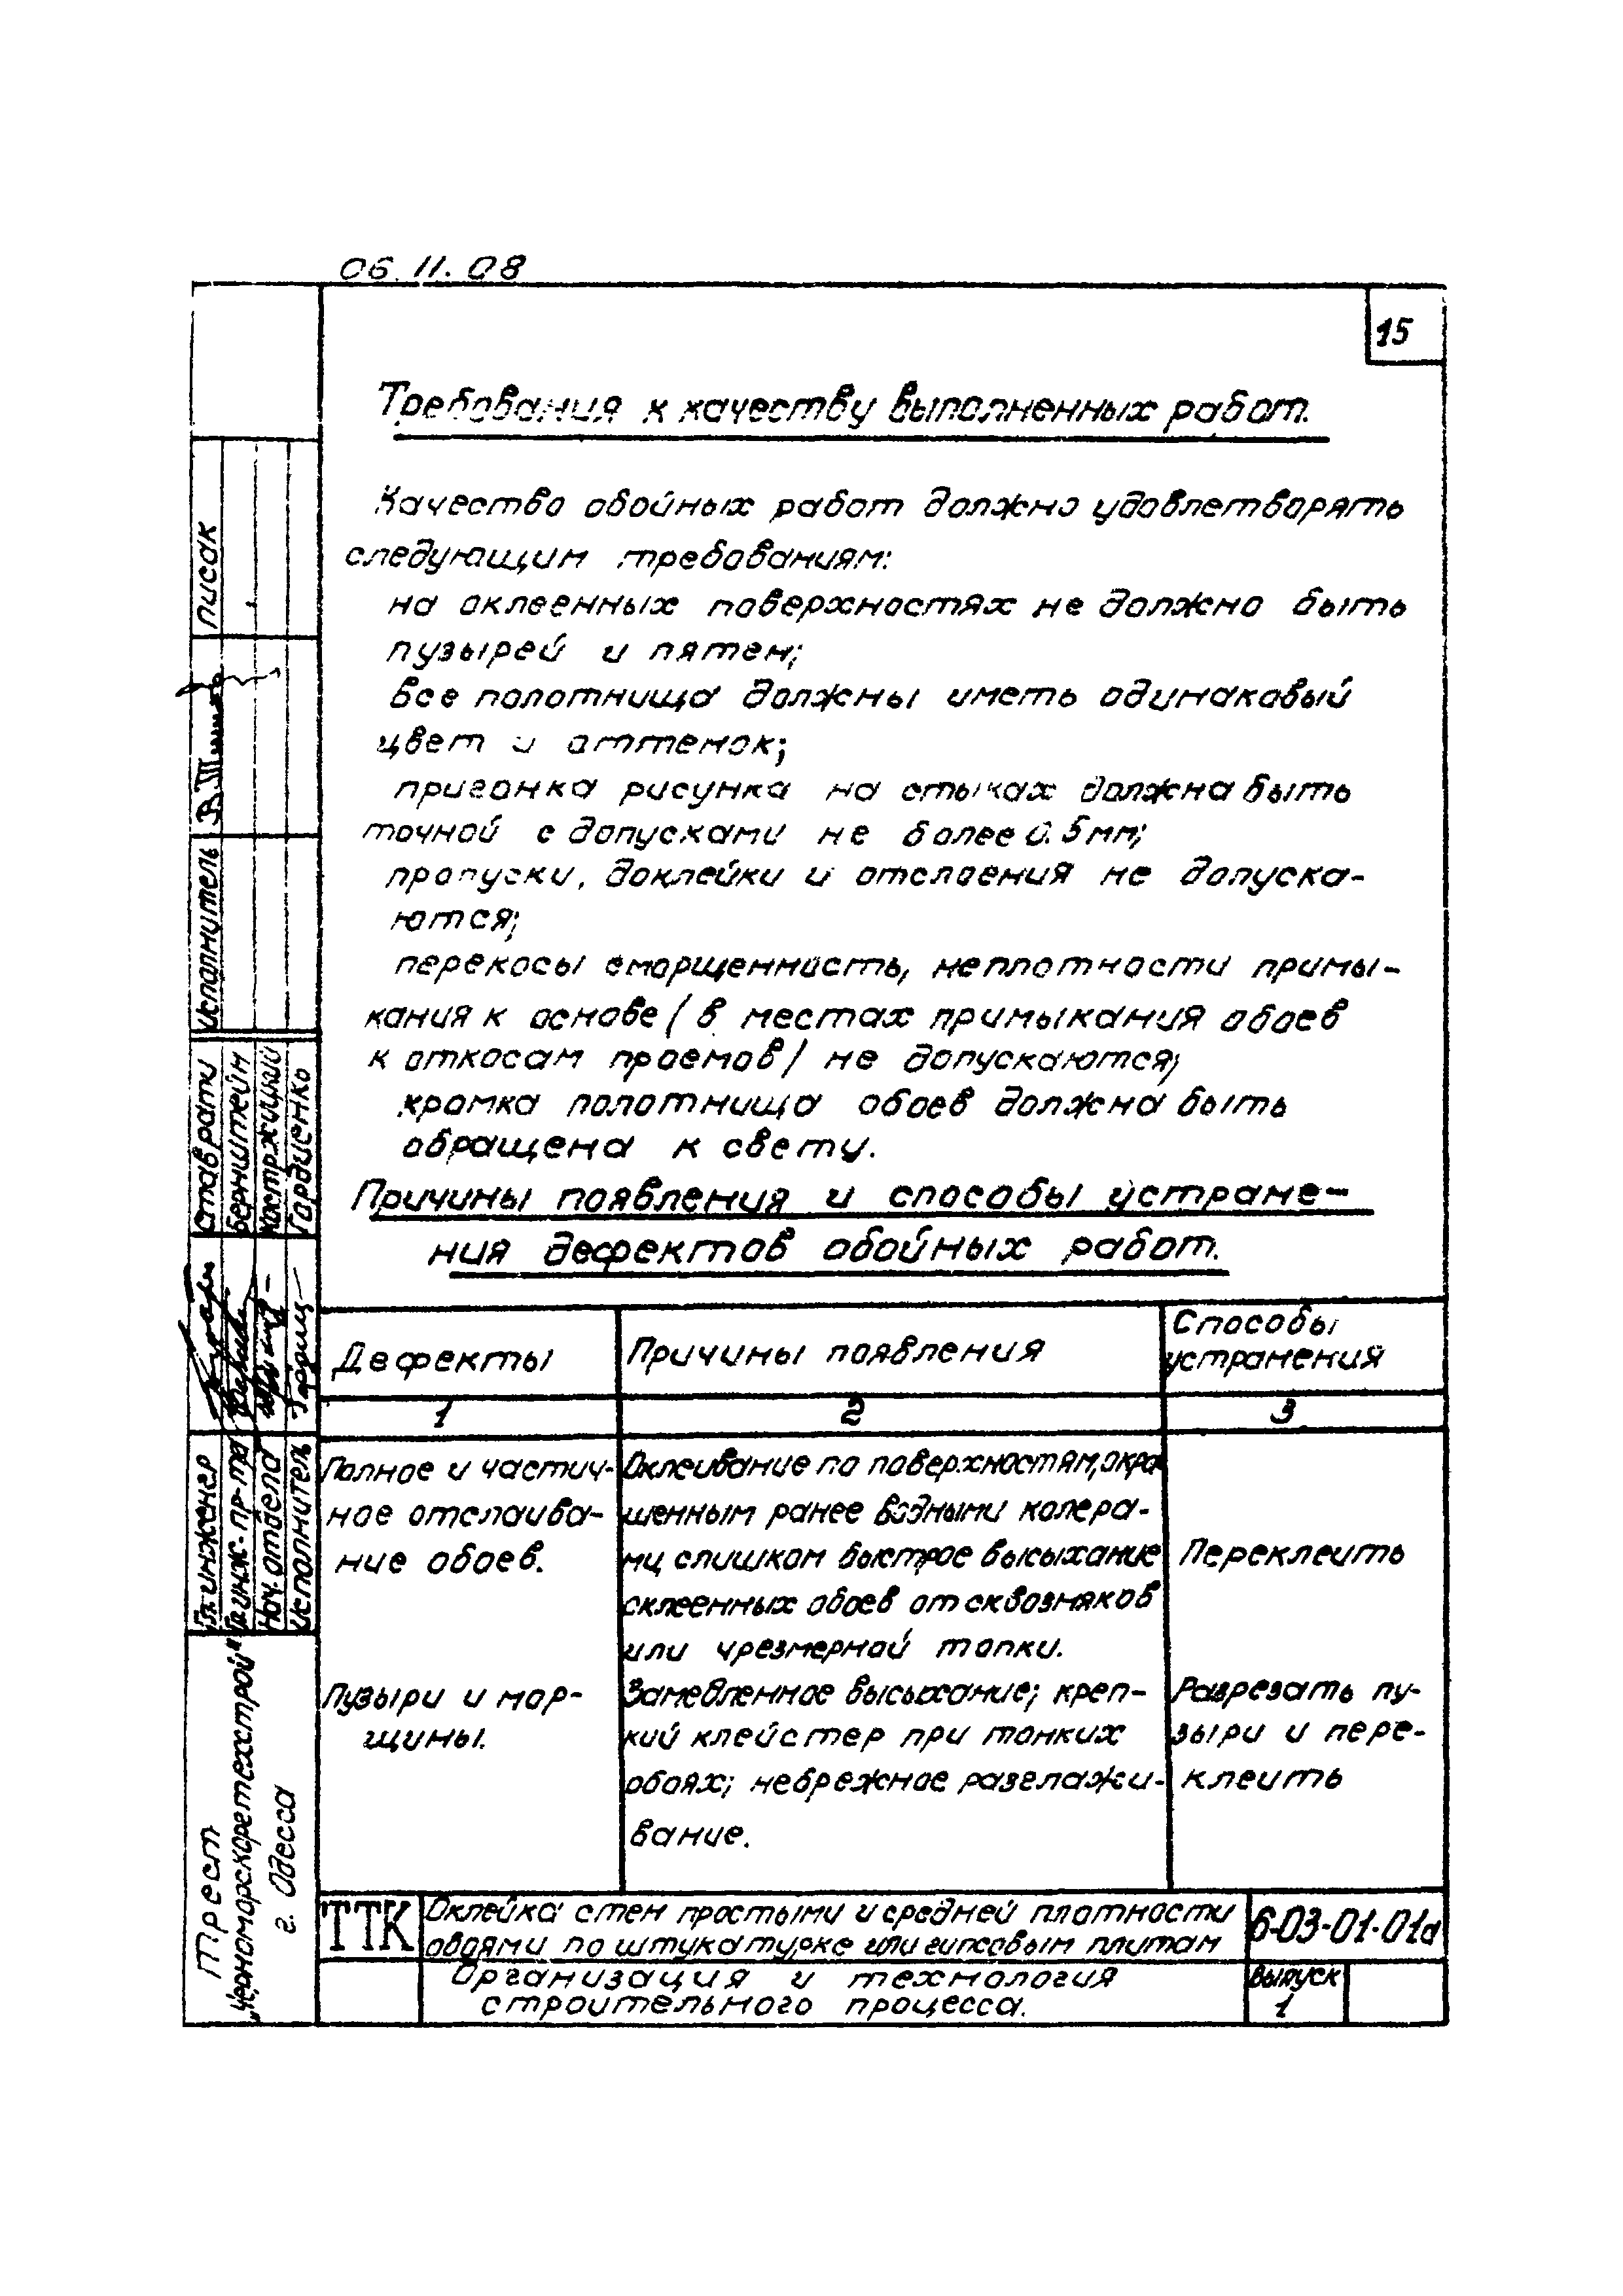 06.11.08
15
Требования к качеству выполненных работ.
Качество обойных работ должно удовлетворять
следующим требованиям:
на оклеенных поверхностях не должно быть
пузырей и пятен;
все полотнища должны иметь одинаковый
цвет и оттенок;
пригонка рисунка на стыках должна быть
точной с допусками не более 0.5мм;
пропуски, доклейки и отслоения не допуска-
ются;
перекосы сморщенность, неплотности примы-
кания к основе / в местах примыкания обоев
к откосам проемов / не допускаются;
кромка полотнища обоев должна быть
обращена к свету.
Причины появления и способы устране-
ния дефектов обойных работ.
Дефекты
Причины появления
Способы
устранения
1
2
3
Полное и частич-
ное отслаива-
ние обоев.
Оклеивание по поверхностям, окра
шенным ранее водными колера-
ми слишком быстрое высыхание
оклеенных обоев от сквозняков
или чрезмерной топки.
Переклеить
Пузыри и мор-
щины.
Замедленное высыхание; креп-
кий клейстер при тонких
обоях; небрежное разглажи-
вание.
Разрезать пу-
зыри и пере-
клеить
ТТК
Оклейка стен простыми и средней плотности
обоями по штукатурке или гипсовым плитам
6-03-01-01а
Организация и технология
строительного процесса.
выпуск
1
Трест
„Черноморскоретехстрой"
г. Одесса
Гл. инженер
Гл. инж. пр-та
Нач. отдела
Исполнитель
Ставрати
Бернштейн
Костржицкий
Гордиенко
Исполнитель
Писак